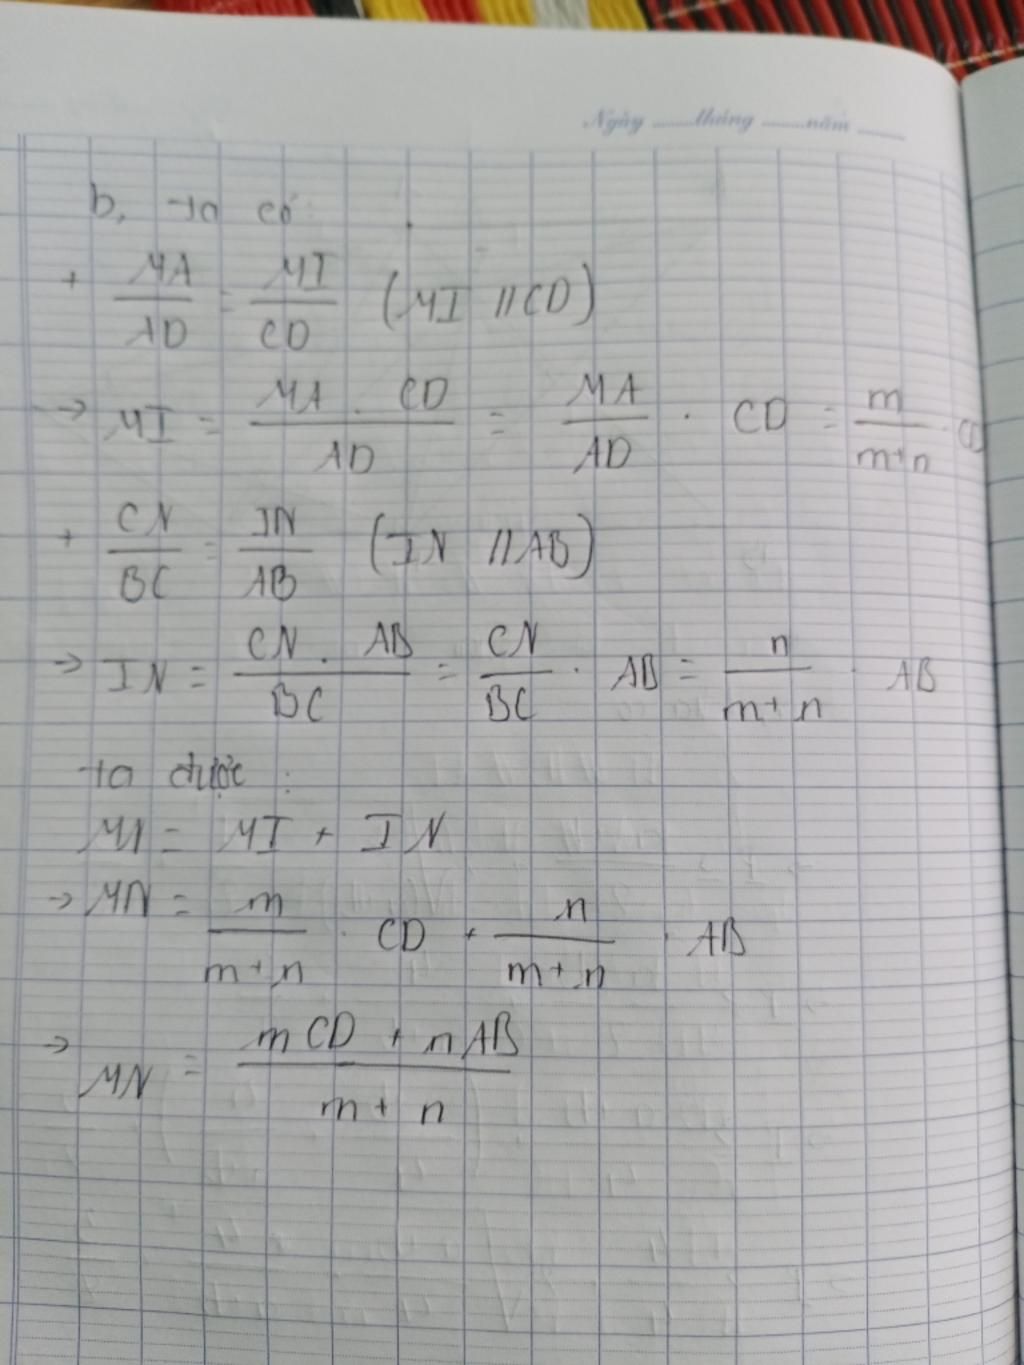 Ngày ........tháng ........năm ........
b, ta có:
+ MA/AD = MI/CD (MI // CD)
→ MI = MA . CD/AD = MA/AD . CD = m/m+n . CD
+ CN/BC = IN/AB (IN // AB)
→ IN = CN . AB/BC = CN/BC . AB = n/m+n . AB
ta được:
MN = MI + IN
→ MN = m/m+n . CD + n/m+n . AB
→ MN = mCD + nAB/m+n